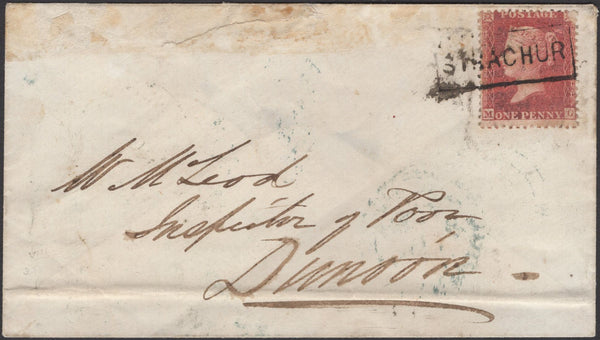 POSTAGE
STRACHUR
ONE PENNY
W McLeod
Inspector of Poor
Dunoon